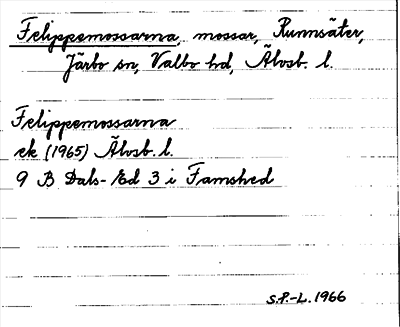 Felippemossarna, mossar, Runnsäter,
Järbo sn, Valbo hd, Älvsb. l.
Felippemossarna
ek (1965) Älvsb. l.
9 B Dals-Ed 3 i Famshed
S.P.-L. 1966